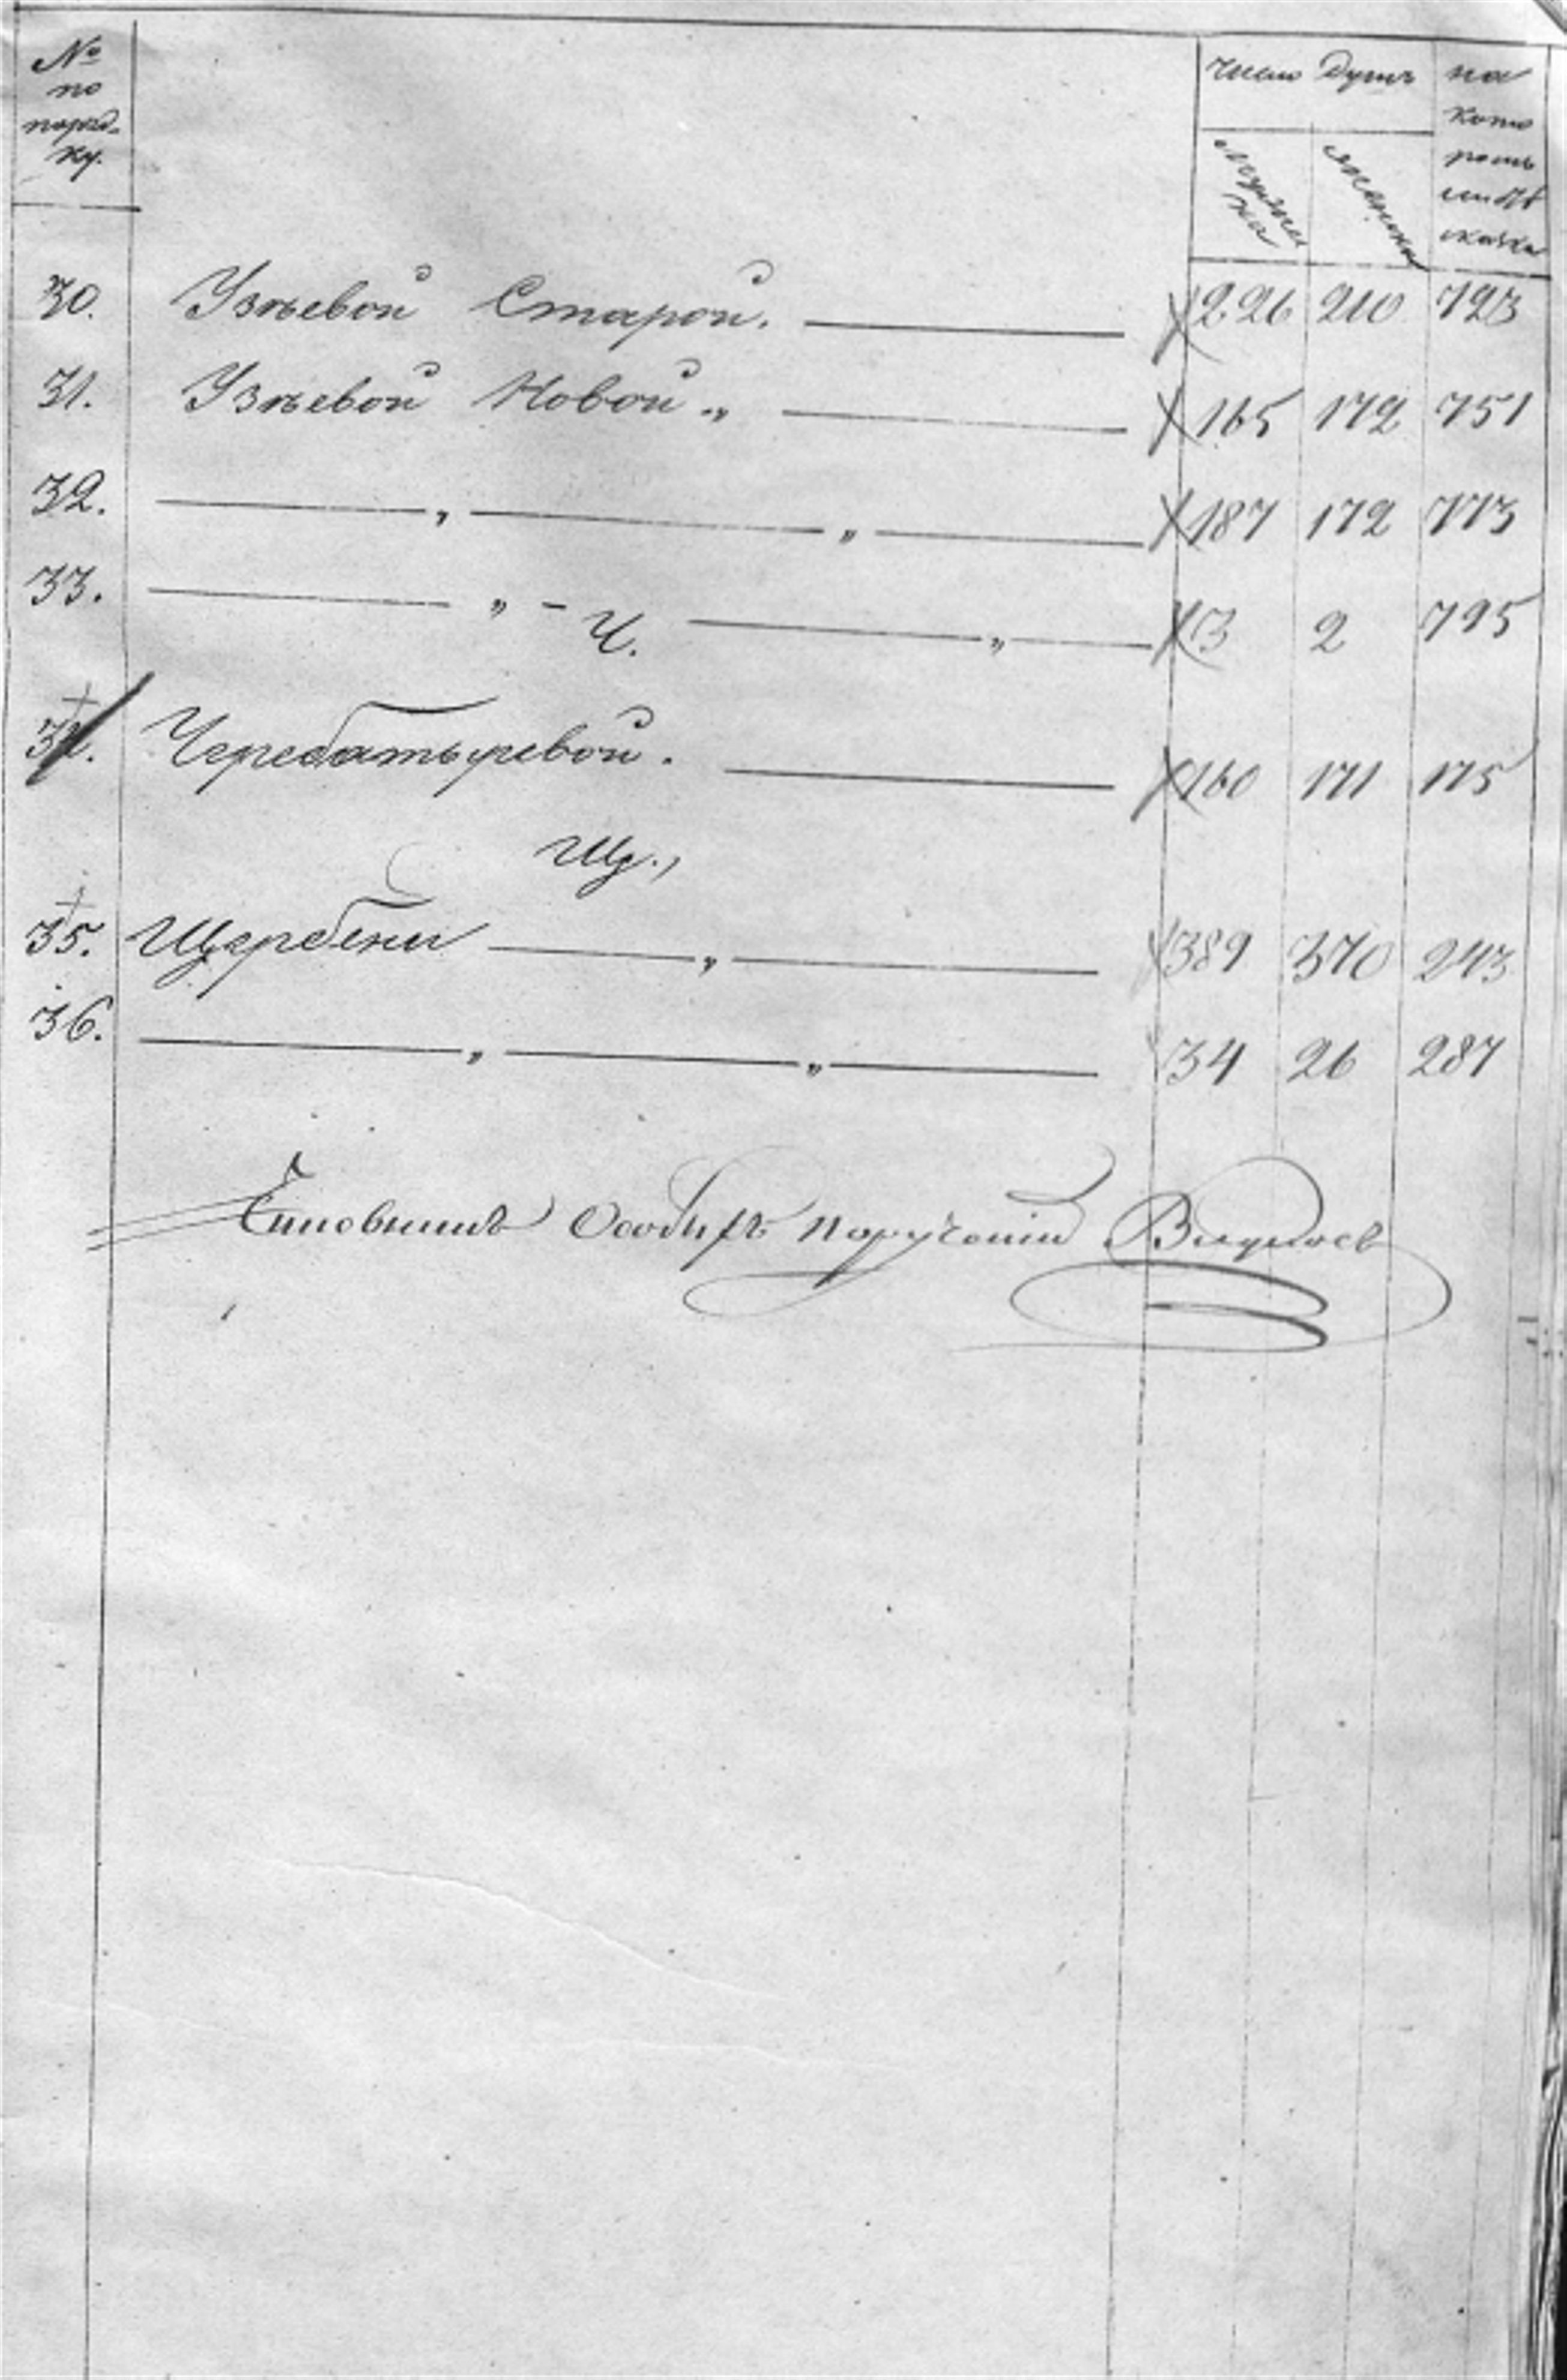 № по порядку.
число душъ
мужеска
женска
на которомъ листѣ сказка
30. Узѣевой Старой. 226 210 723
31. Узѣевой Новой „ 165 172 751
32. „ „ 187 172 773
33. „ „ 3 2 795
Ч.
34. Черебатыревой. 160 171 175
Щ.
35. Щербени „ 389 370 243
36. „ „ 34 26 287
Чиновникъ Особыхъ порученій